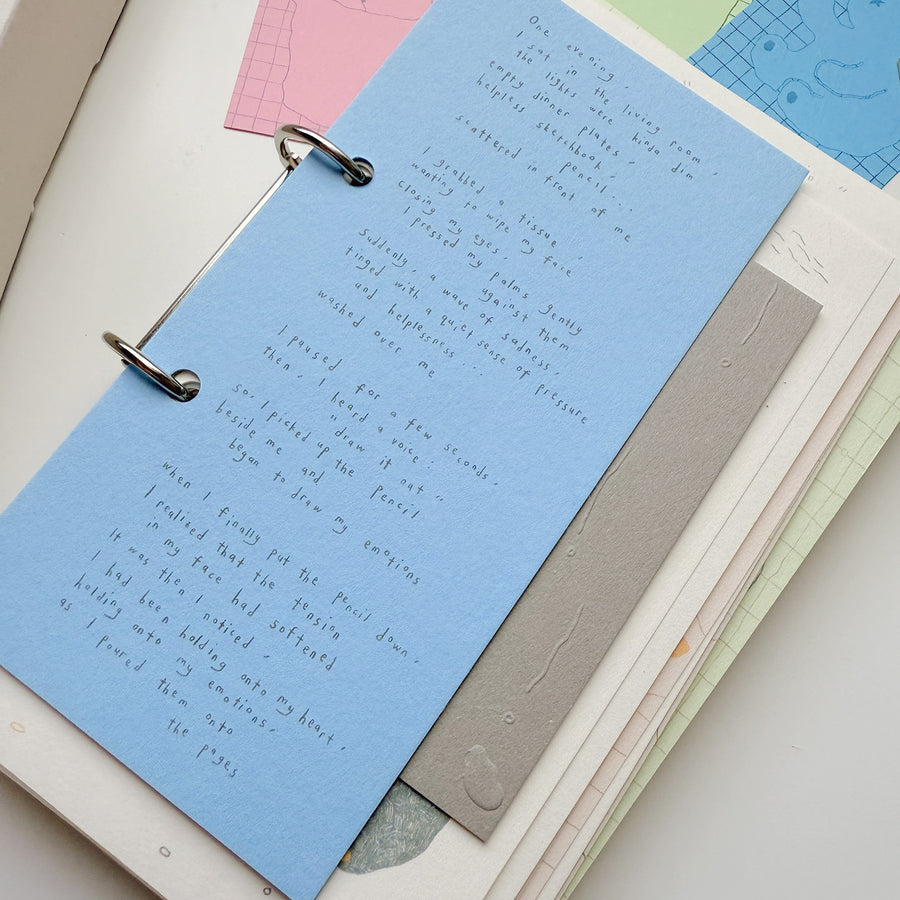 One evening,
I sat in the living room,
the lights were kinda dim
empty dinner plates,
helpless sketchbook,
pencil....
scattered in front of me
I grabbed a tissue,
wanting to wipe my face
closing my eyes,
I pressed my palms gently
against them
Suddenly, a wave of sadness,
tinged with a quiet sense of pressure
and helplessness....
washed over me
I paused for a few seconds,
then, I heard a voice:
"draw it out"
So, I picked up the pencil
beside me and
began to draw my emotions
when I finally put the pencil down,
I realized that the tension
in my face had softened
It was then I noticed,
I had been holding onto my heart,
holding onto my emotions,
as I poured them onto
the pages